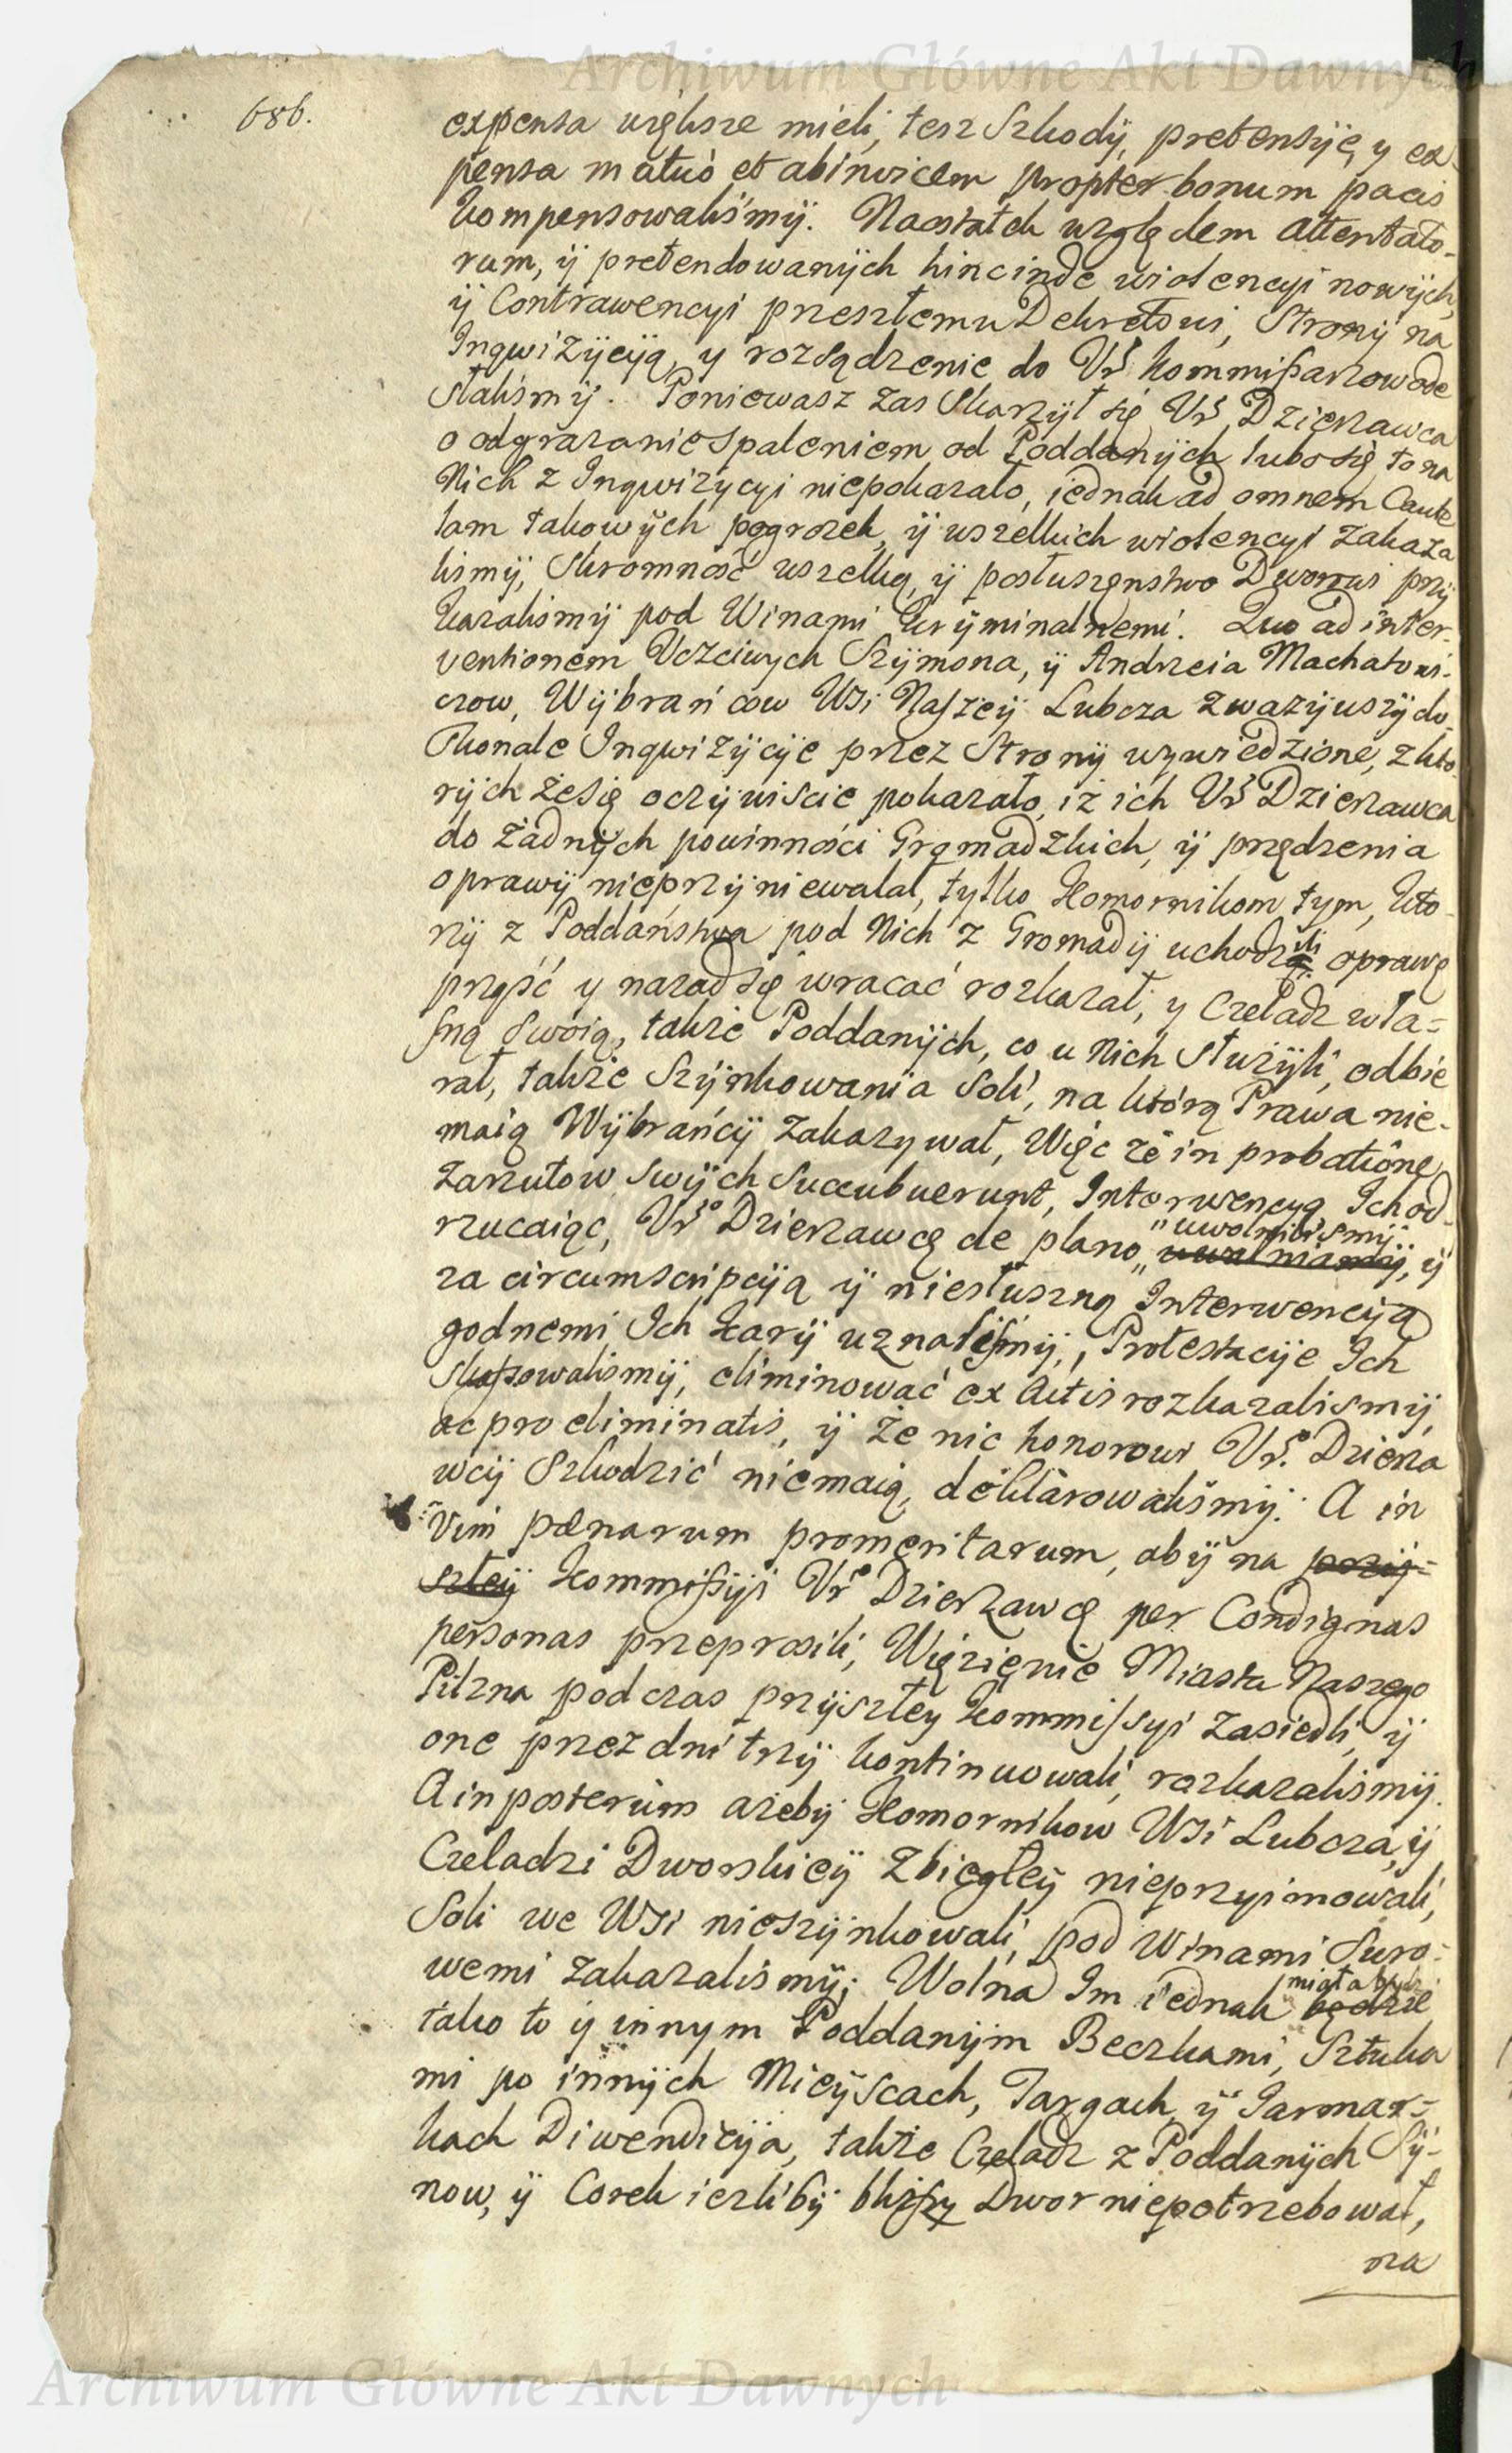 Archiwum Główne Akt Dawnych
686.
expensa większe mieli, tesz Szkodÿ, pretensÿe, y ex-
pensa mutuò et abinvicem propter bonum pacis
kompensowaliśmÿ. Naostatek względem attentato-
rum, ÿ pretendowanÿch hinc inde wiolencyi nowÿch,
ÿ Contrawencyi przeszłemu Dekretowi, Stronÿ na
Inqwizÿcÿą, y rozsądzenie do Ur. Kommißarzow ode
słaliśmÿ. Poniewasz zas Skarzÿł się Ur. Dzierzawca
o odgrazanie spaleniem od Poddanÿch lubo się to na
Nich z Inqwizycyi niepokazało, iednak ad omnem Caute
lam takowÿch pogrozek, ÿ wszelkich wiolencyi zakaza
lismÿ, Skromność wszelką, ÿ posłuszęnstwo Dworowi przÿ
kazalismÿ pod Winami krÿminalnemi. Quo ad inter-
ventionem Uczciwych Szÿmona, ÿ Andrzeia Machatowi-
czow, Wÿbrańcow Wsi Naszeÿ Lubcza zwazÿwszÿ do
skonale Inqwizÿcÿe przez Stronÿ wywiedzione, z kto-
rÿch że się oczÿwiscie pokazało, iż ich Ur. Dzierzawca
do żadnÿch powinności Gromadzkich, ÿ przędzenia
oprawÿ nieprzÿniewalał, tylko Komornikom tym, kto-
rÿ z Poddaństwa pod Nich z Gromadÿ uchodzili oprawę
prząść y nazad się wracać rozkazał, y Czeladz wła-
sną swoią, także Poddanÿch, co u Nich Służÿli, odbie
rał, także Szÿnkowania Soli, na którą Prawa nie-
maią Wÿbrańcÿ zakazywał, Więc że in probatione
zarzutow swÿch succubuerunt, Interwencyą Ich od-
rzucaiąc, Ur. Dzierzawcę de plano uwolnilismÿ uwalniamÿ, ÿ
za circumscripcÿą ÿ niesłuszną Interwencÿą
godnemi Ich karÿ uznalismÿ, Protestacÿe Ich
skassowalismÿ, eliminować ex Actis rozkazalismÿ,
ac pro eliminatis, ÿ że nic honorowi Ur. Dzierza
wcÿ Szkodzić niemaią, deklarowaliśmÿ. A in
vim pœnarum promeritarum, abÿ na przÿ-
szłeÿ Kommißÿi Ur. Dzierzawcę per Condignas
personas przeprosili, Więzięnie Miasta Naszego
Pilzna podczas przÿszłey Kommissyi zasiedli, ÿ
one przez dni trzÿ kontinuowali, rozkazalismÿ.
A in posterum ażebÿ Komornikow Wsi Lubcza, ÿ
Czeladzi Dworskieÿ Zbiegłeÿ nieprzyimowali,
Soli we Wsi nieszÿnkowali, pod winami Suro-
wemi zakazalismÿ; Wolna Im iednak miała bydz będzie
tako to ÿ innym Poddanÿm Beczkami, Sztuka
mi po innÿch Mieÿscach, Targach ÿ Jarmar-
kach Diwendicÿa, także Czeladz z Poddanÿch Sÿ-
now, ÿ Corek iezlibÿ bliszy Dwor niepotrzebował,
na
Archiwum Główne Akt Dawnych